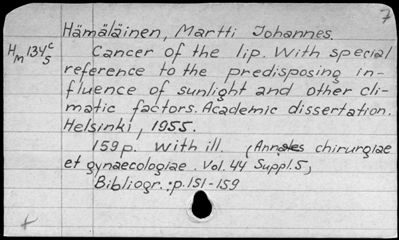 7
Hämäläinen, Martti Johannes.
Hm 134c5 Cancer of the lip. With special
reference to the predisposing in-
fluence of sunlight and other cli-
matic factors. Academic dissertation.
Helsinki, 1955.
159 p. with ill. (Annales chirurgiae
et gynaecologiae. Vol. 44 Suppl. 5)
Bibliogr.: p. 151-159